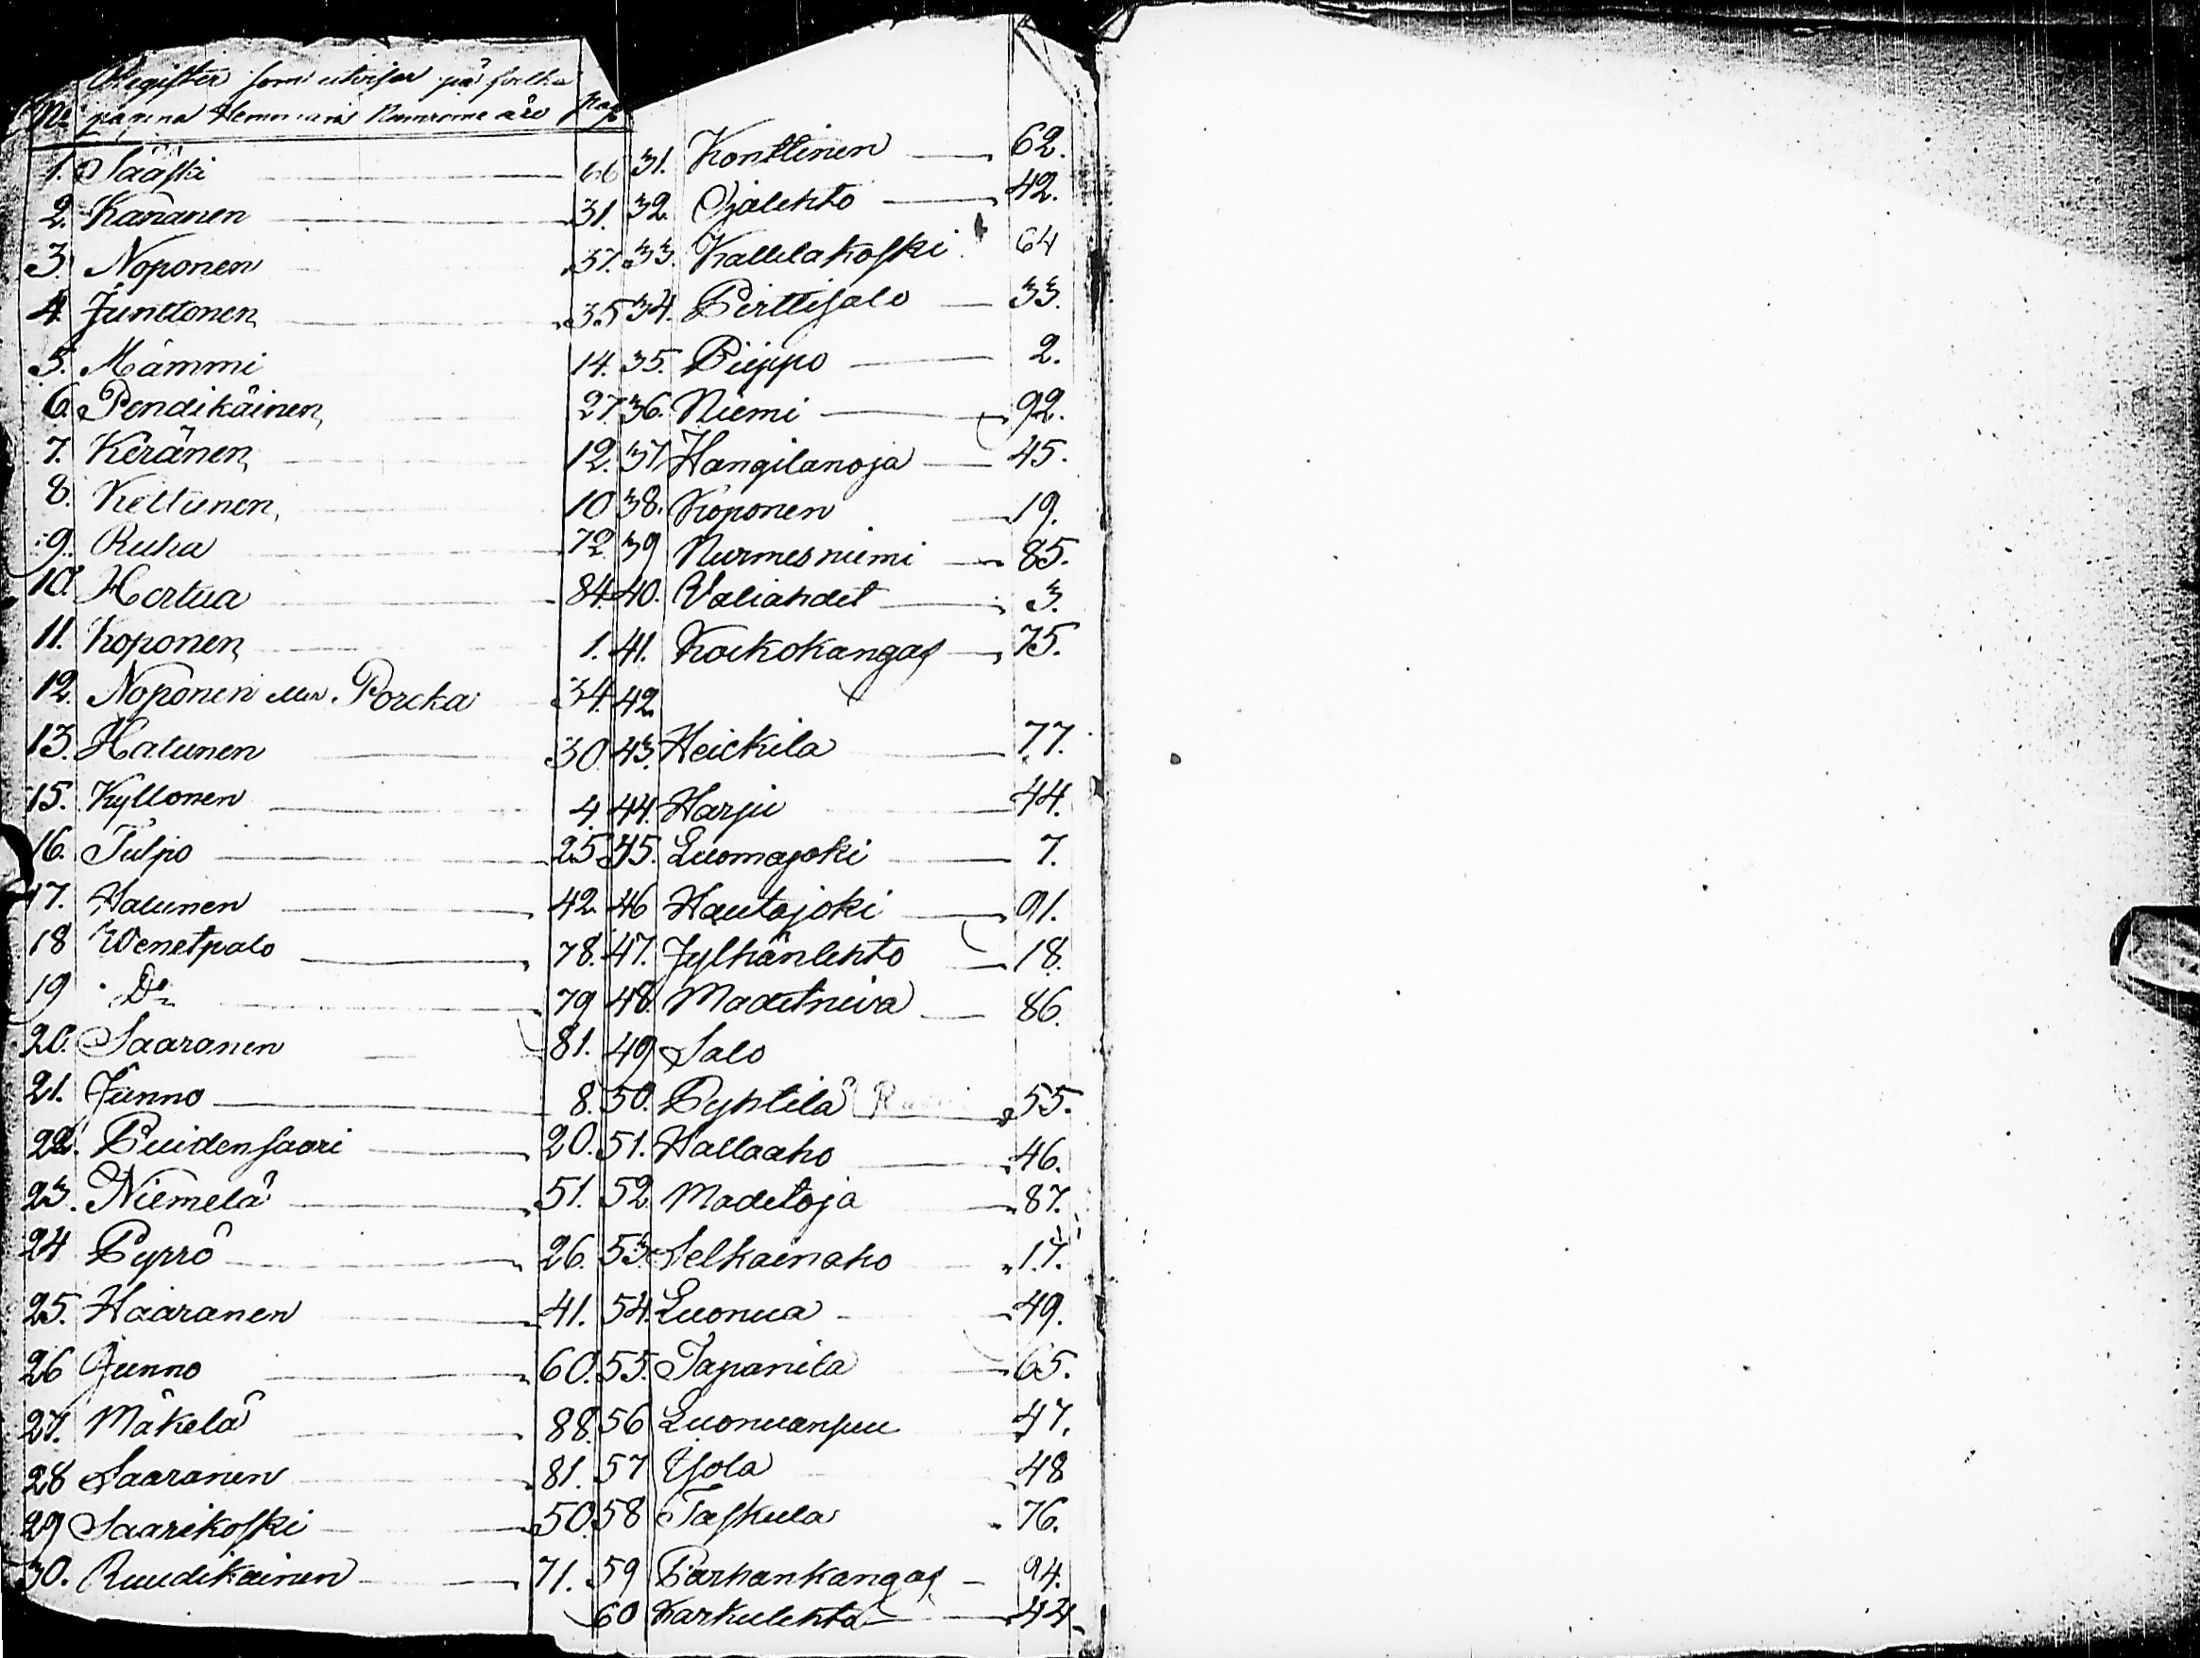 Register som utvisar på hvilka
No pagina Hemmans Numrorne äro pag
1. Sääski 66
2. Kananen 31.
3. Noponen 37.
4. Junttonen 35
5. Mämmi 14.
6. Pendikäinen 27.
7. Keränen 12.
8. Keltunen 10
9. Ruha 72
10. Hertua 84.
11. Koponen 1.
12. Noponen eller Porcka 34.
13. Halunen 30
15. Kyllonen 4.
16. Tulpo 25
17. Halunen 42.
18 Wenetpalo 78.
19 Do 79
20. Saaranen 81.
21. Junno 8.
22. Puidensaari 20.
23. Niemelä 51.
24 Pyrrö 26.
25. Haaranen 41.
26 Junno 60.
27. Mäkelä 88.
28 Saaranen 81.
29 Saarikoski 50.
30. Ruudikainen 71.
31. Konttinen 62.
32. Ojalehto 42.
33. Kallilakoski 64
34. Pirttisalo 33.
35. Piippo 2.
36. Niemi 92.
37. Hangilanoja 45.
38. Koponen 19.
39 Nurmesniemi 85.
40. Valiahdet 3.
41. Kockokangas 75.
42
43. Heickila 77.
44. Harju 44.
45. Luomajoki 7.
46 Hautajoki 91.
47. Jylhänlehto 18.
48. Madetneva 86.
49 Salo
50. Pyhtilä 55.
51. Hallaaho 46.
52 Madetoja 87.
53. Selkaenaho 17.
54. Luonua 49.
55. Tapanila 65.
56 Luonuansuu 47.
57 Yola 48
58 Taskula 76.
59 Parhankangas 94.
60 Karkulehto 44